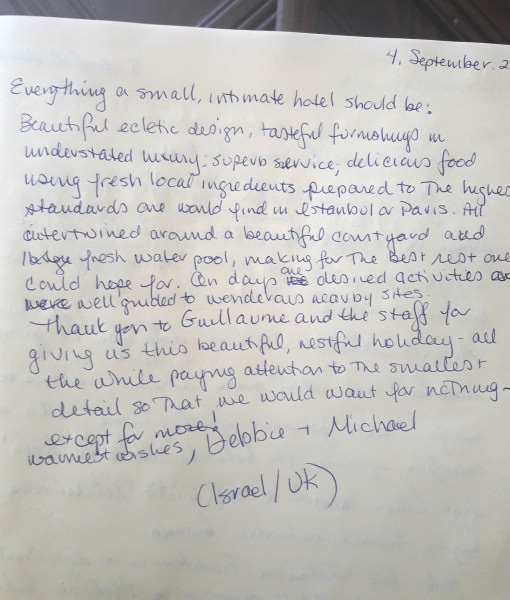 4. September. 2
Everything a small, intimate hotel should be:
Beautiful ecletic design, tasteful furnishings in
understated luxury; superb service, delicious food
using fresh local ingredients prepared to The highes
standards one would find in Istanbul or Paris. All
intertwined around a beautiful courtyard and
large fresh water pool, making for The best rest one
could hope for. On days one desired activities
were well guided to wonderous nearby sites.
Thank you to Guillaume and the staff for
giving us this beautiful, restful holiday - all
the while paying attention to The smallest
detail so That we would want for nothing -
except for more!
warmest wishes, Debbie + Michael
(Israel/UK)